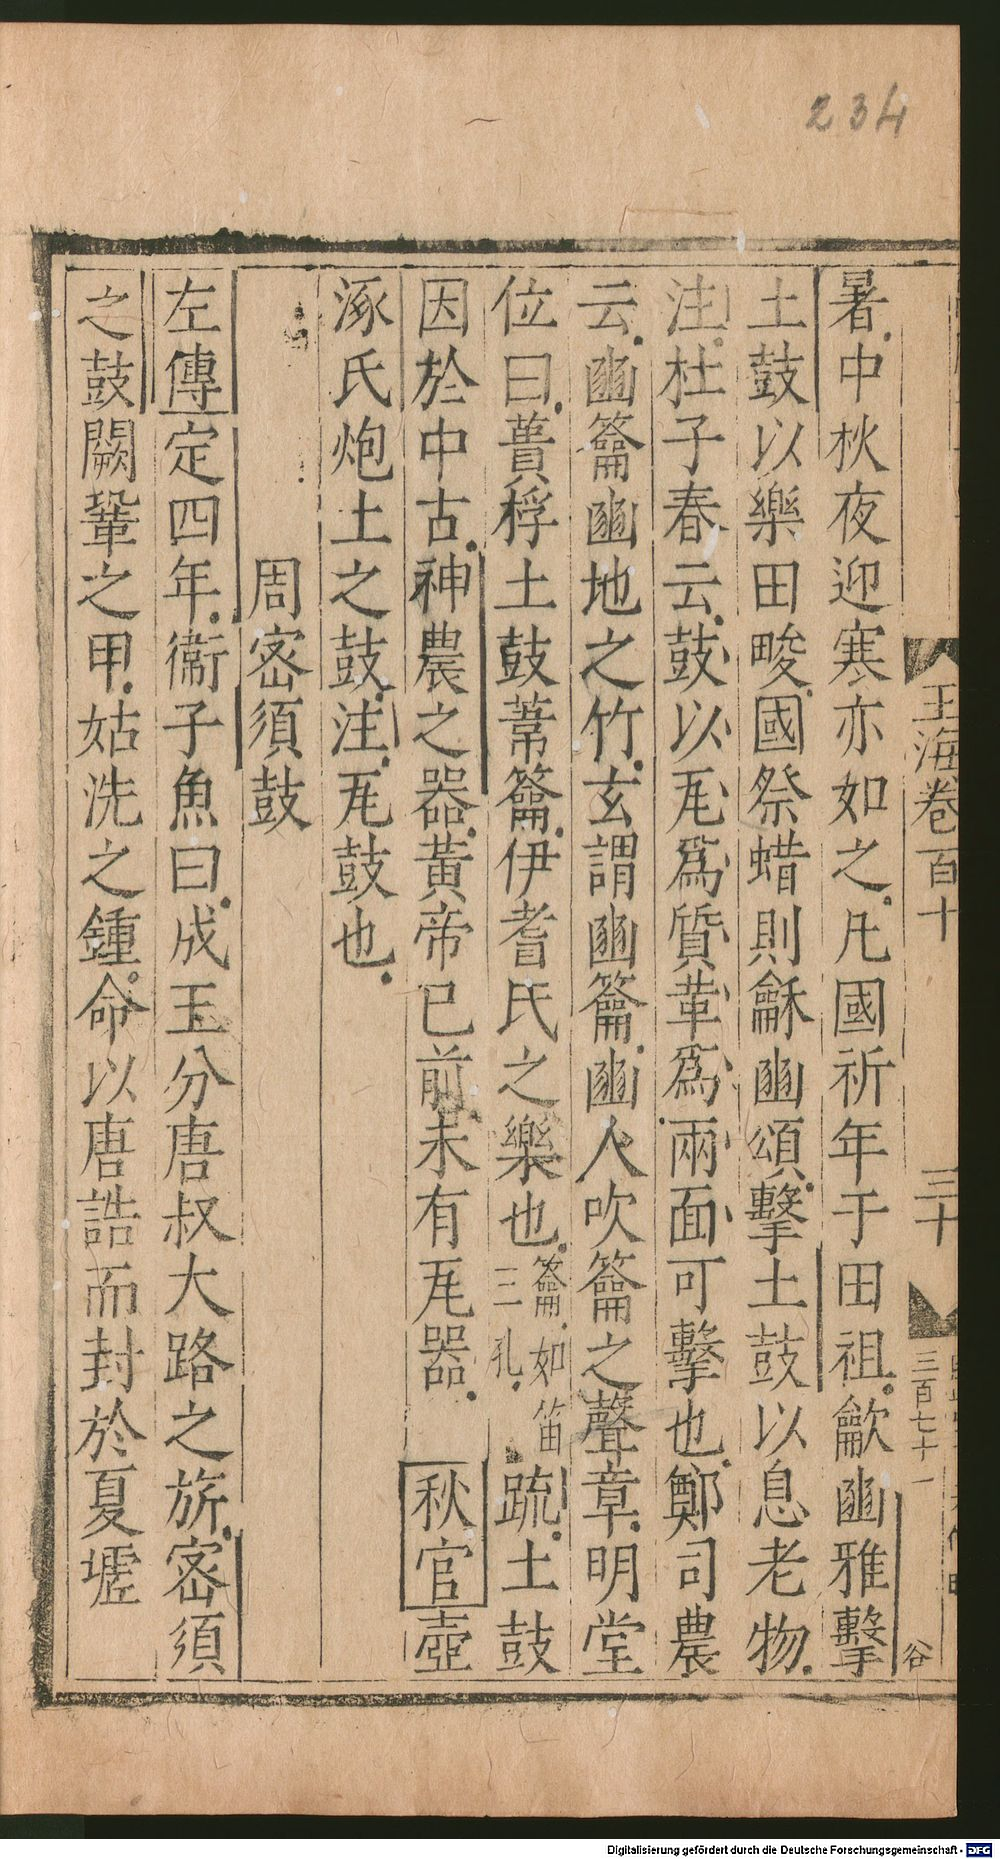 234
玉海卷百十
三十
三百七十一
谷
暑中秋夜迎寒亦如之凡國祈年于田祖龡豳雅擊
土鼓以樂田畯國祭蜡則龢豳頌擊土鼓以息老物
注杜子春云鼓以瓦爲質革爲兩面可擊也鄭司農
云豳籥豳地之竹玄謂豳籥豳人吹籥之聲章明堂
位曰蕢桴土鼓葦籥伊耆氏之樂也籥如笛三孔疏土鼓
因於中古神農之器黃帝已前未有瓦器秋官壺
涿氏炮土之鼓注瓦鼓也
周密須鼓
左傳定四年衞子魚曰成王分唐叔大路之旂密須
之鼓闕鞏之甲姑洗之鍾命以唐誥而封於夏墟
Digitalisierung gefördert durch die Deutsche Forschungsgemeinschaft - DFG